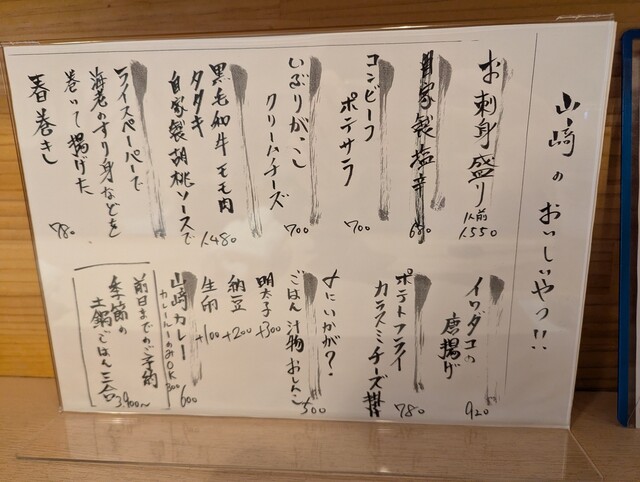 山﨑のおいしいやつ!!
お刺身盛り 1人前 1.550
自家製塩辛 650
コンビーフ
ポテサラ 700
いぶりがっこ
クリームチーズ 700
黒毛和牛モモ肉
タタキ
自家製胡桃ソースで 1.480
ライスペーパーで
海老のすり身などを
巻いて揚げた
春巻き 780
イワダコの
唐揚げ 920
ポテトフライ
カラスミチーズ掛け 780
〆にいかが?
ごはん 汁物 おしんこ 500
明太子 +300
納豆 +200
生卵 +100
山﨑カレー 600
カレールーのみOK 300
前日までのご予約
季節の
土鍋ごはん三合 3.900〜